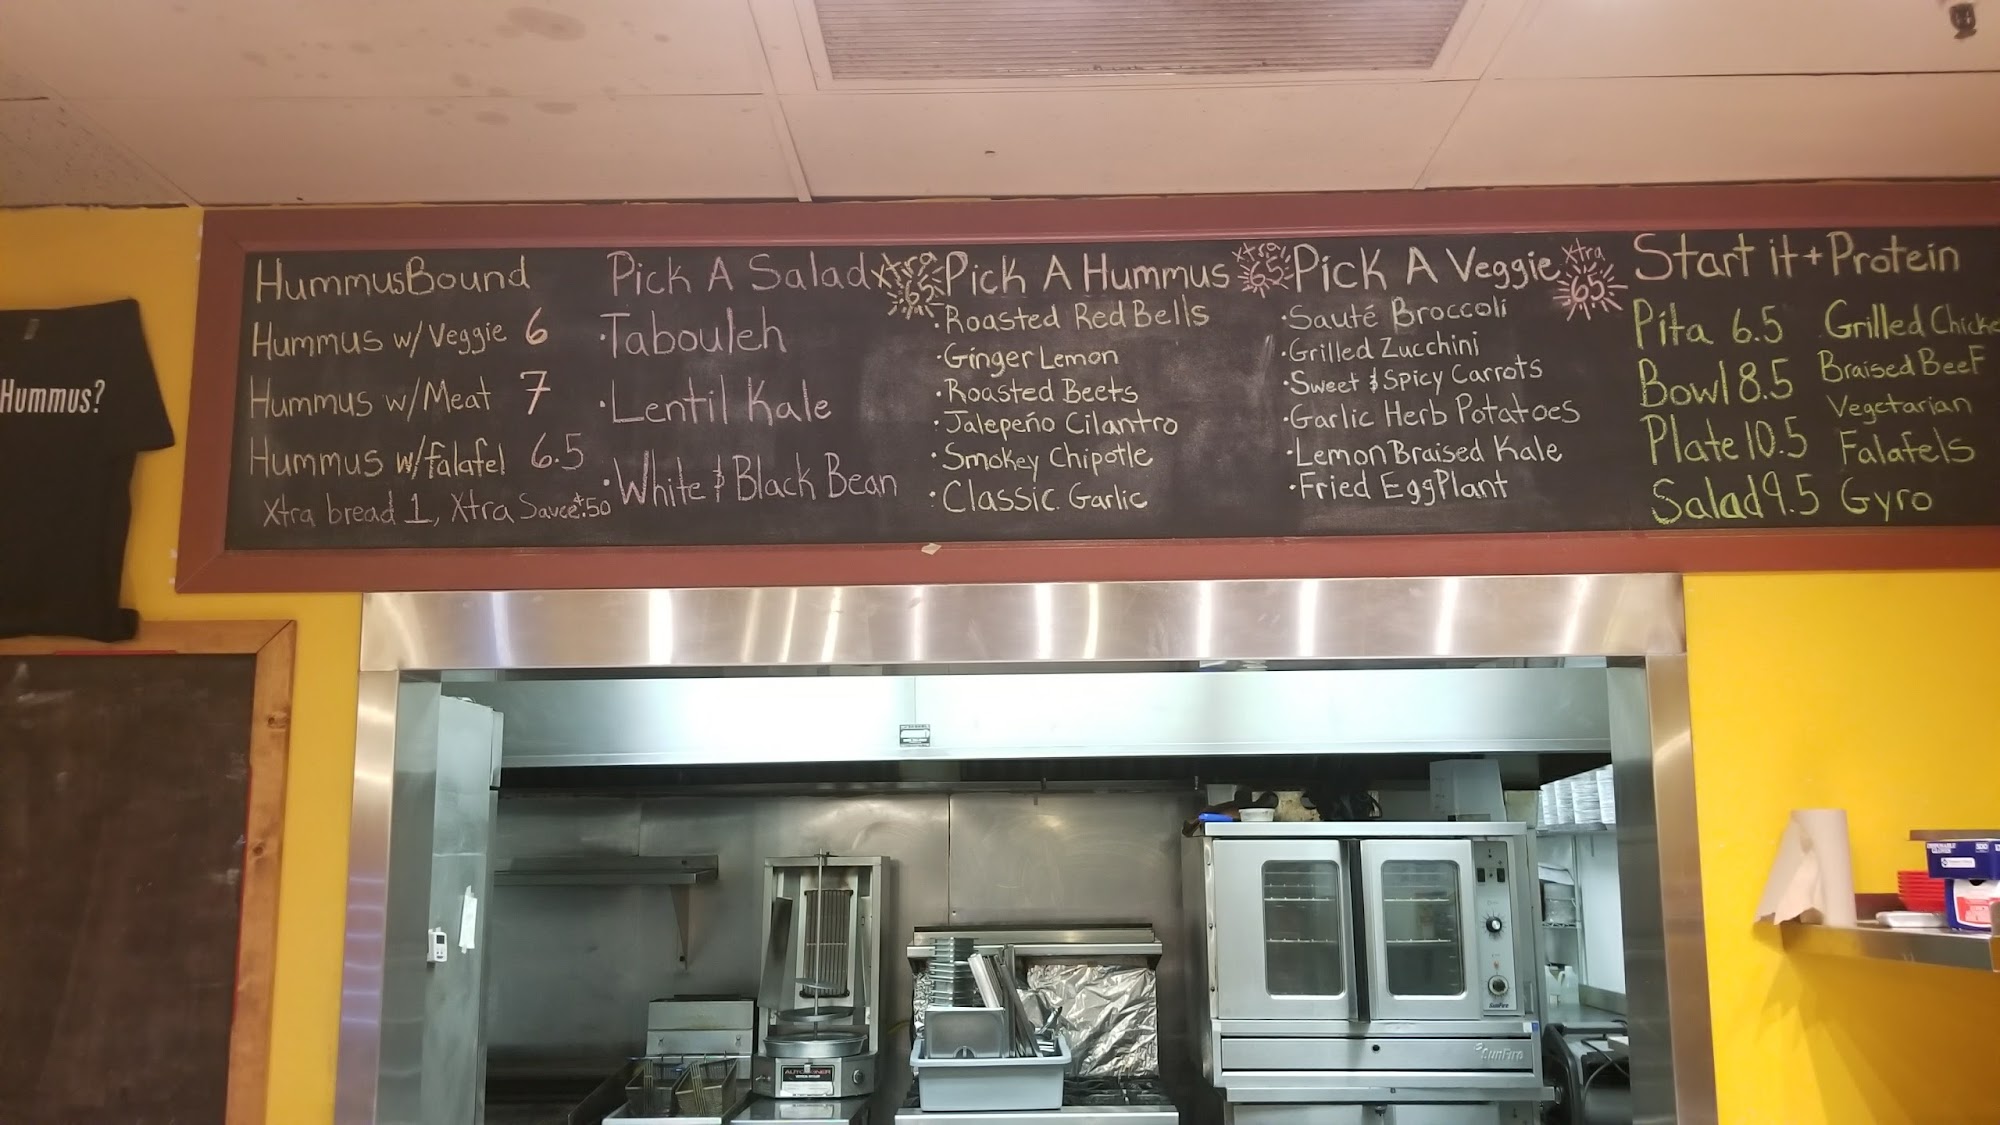 HummusBound
Hummus w/Veggie 6
Hummus w/Meat 7
Hummus w/falafel 6.5
Xtra bread 1, Xtra Sauce $.50
Pick A Salad
Xtra
65
·Tabouleh
·Lentil Kale
·White & Black Bean
Pick A Hummus
Xtra
65
·Roasted Red Bells
·Ginger Lemon
·Roasted Beets
·Jalepeño Cilantro
·Smokey Chipotle
·Classic Garlic
Pick A Veggie
Xtra
65
·Sauté Broccoli
·Grilled Zucchini
·Sweet & Spicy Carrots
·Garlic Herb Potatoes
·Lemon Braised Kale
·Fried EggPlant
Start it + Protein
Pita 6.5
Bowl 8.5
Plate 10.5
Salad 9.5
Grilled Chicke
Braised Beef
Vegetarian
Falafels
Gyro
Hummus?
SunFire